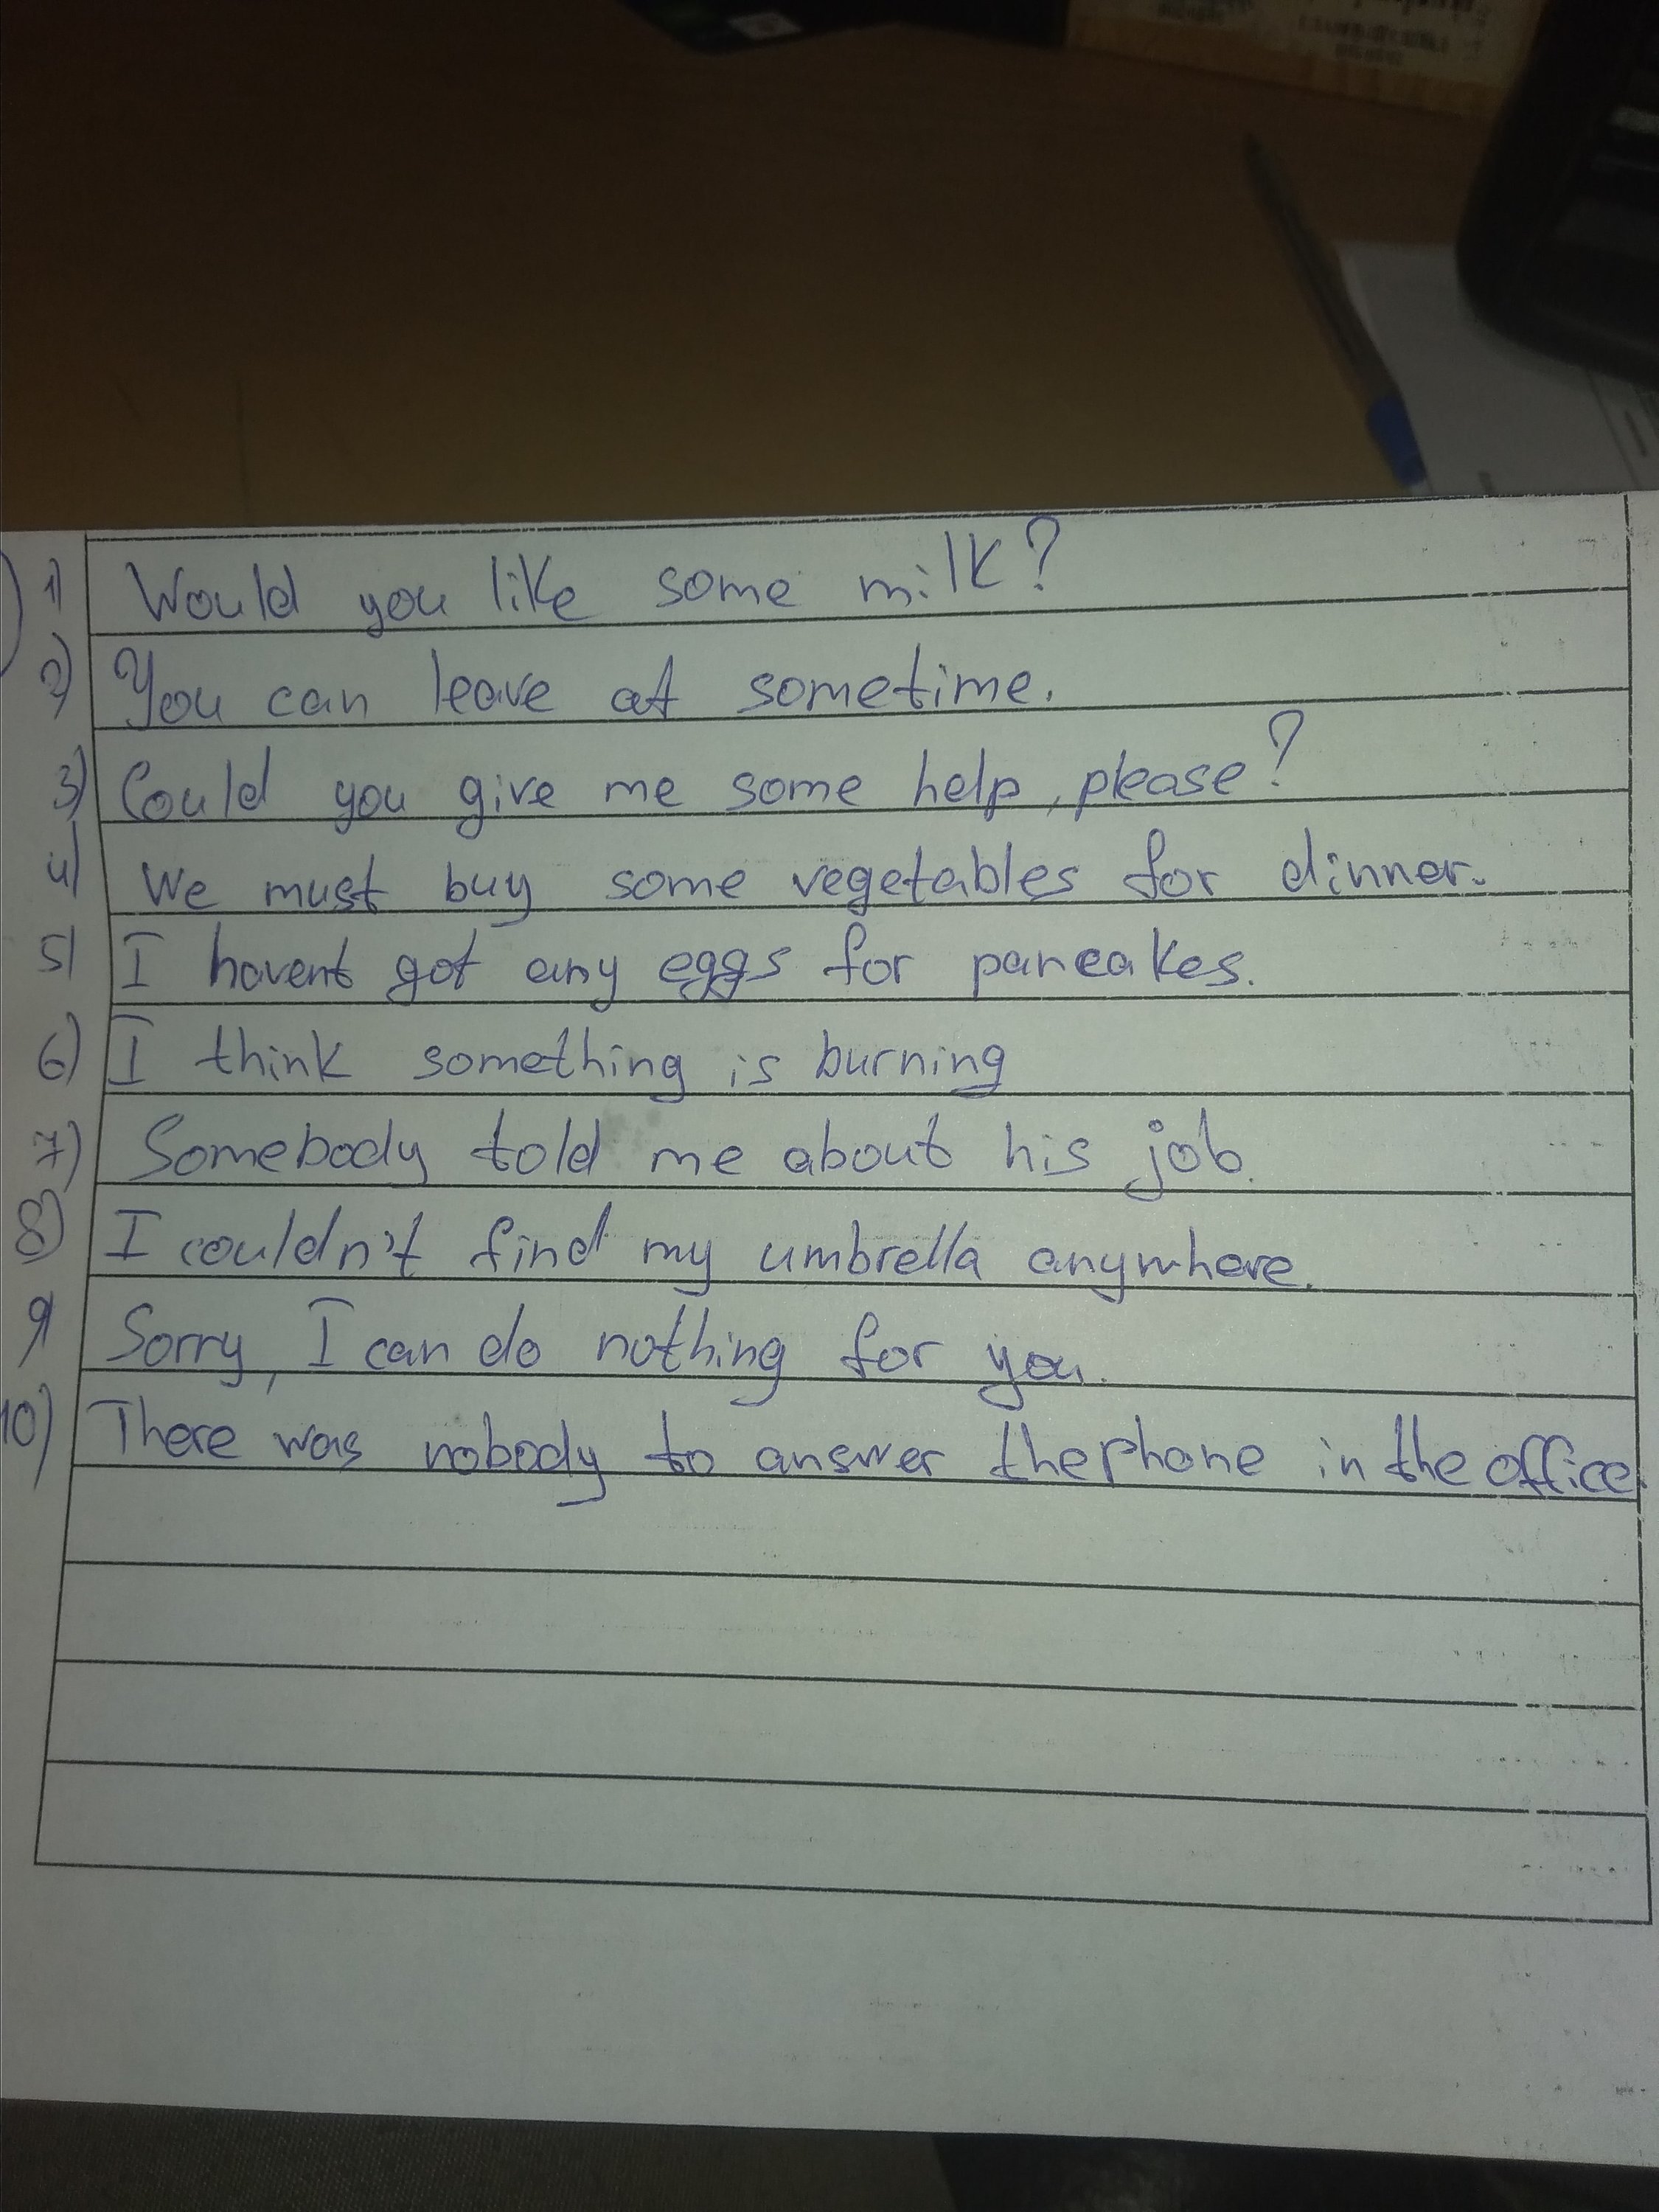 1) Would you like some milk?
2) You can leave at sometime.
3) Could you give me some help, please?
4) We must buy some vegetables for dinner.
5) I havent got any eggs for pancakes.
6) I think something is burning
7) Somebody told me about his job.
8) I couldn't find my umbrella anywhere.
9) Sorry, I can do nothing for you.
10) There was nobody to answer the phone in the office.